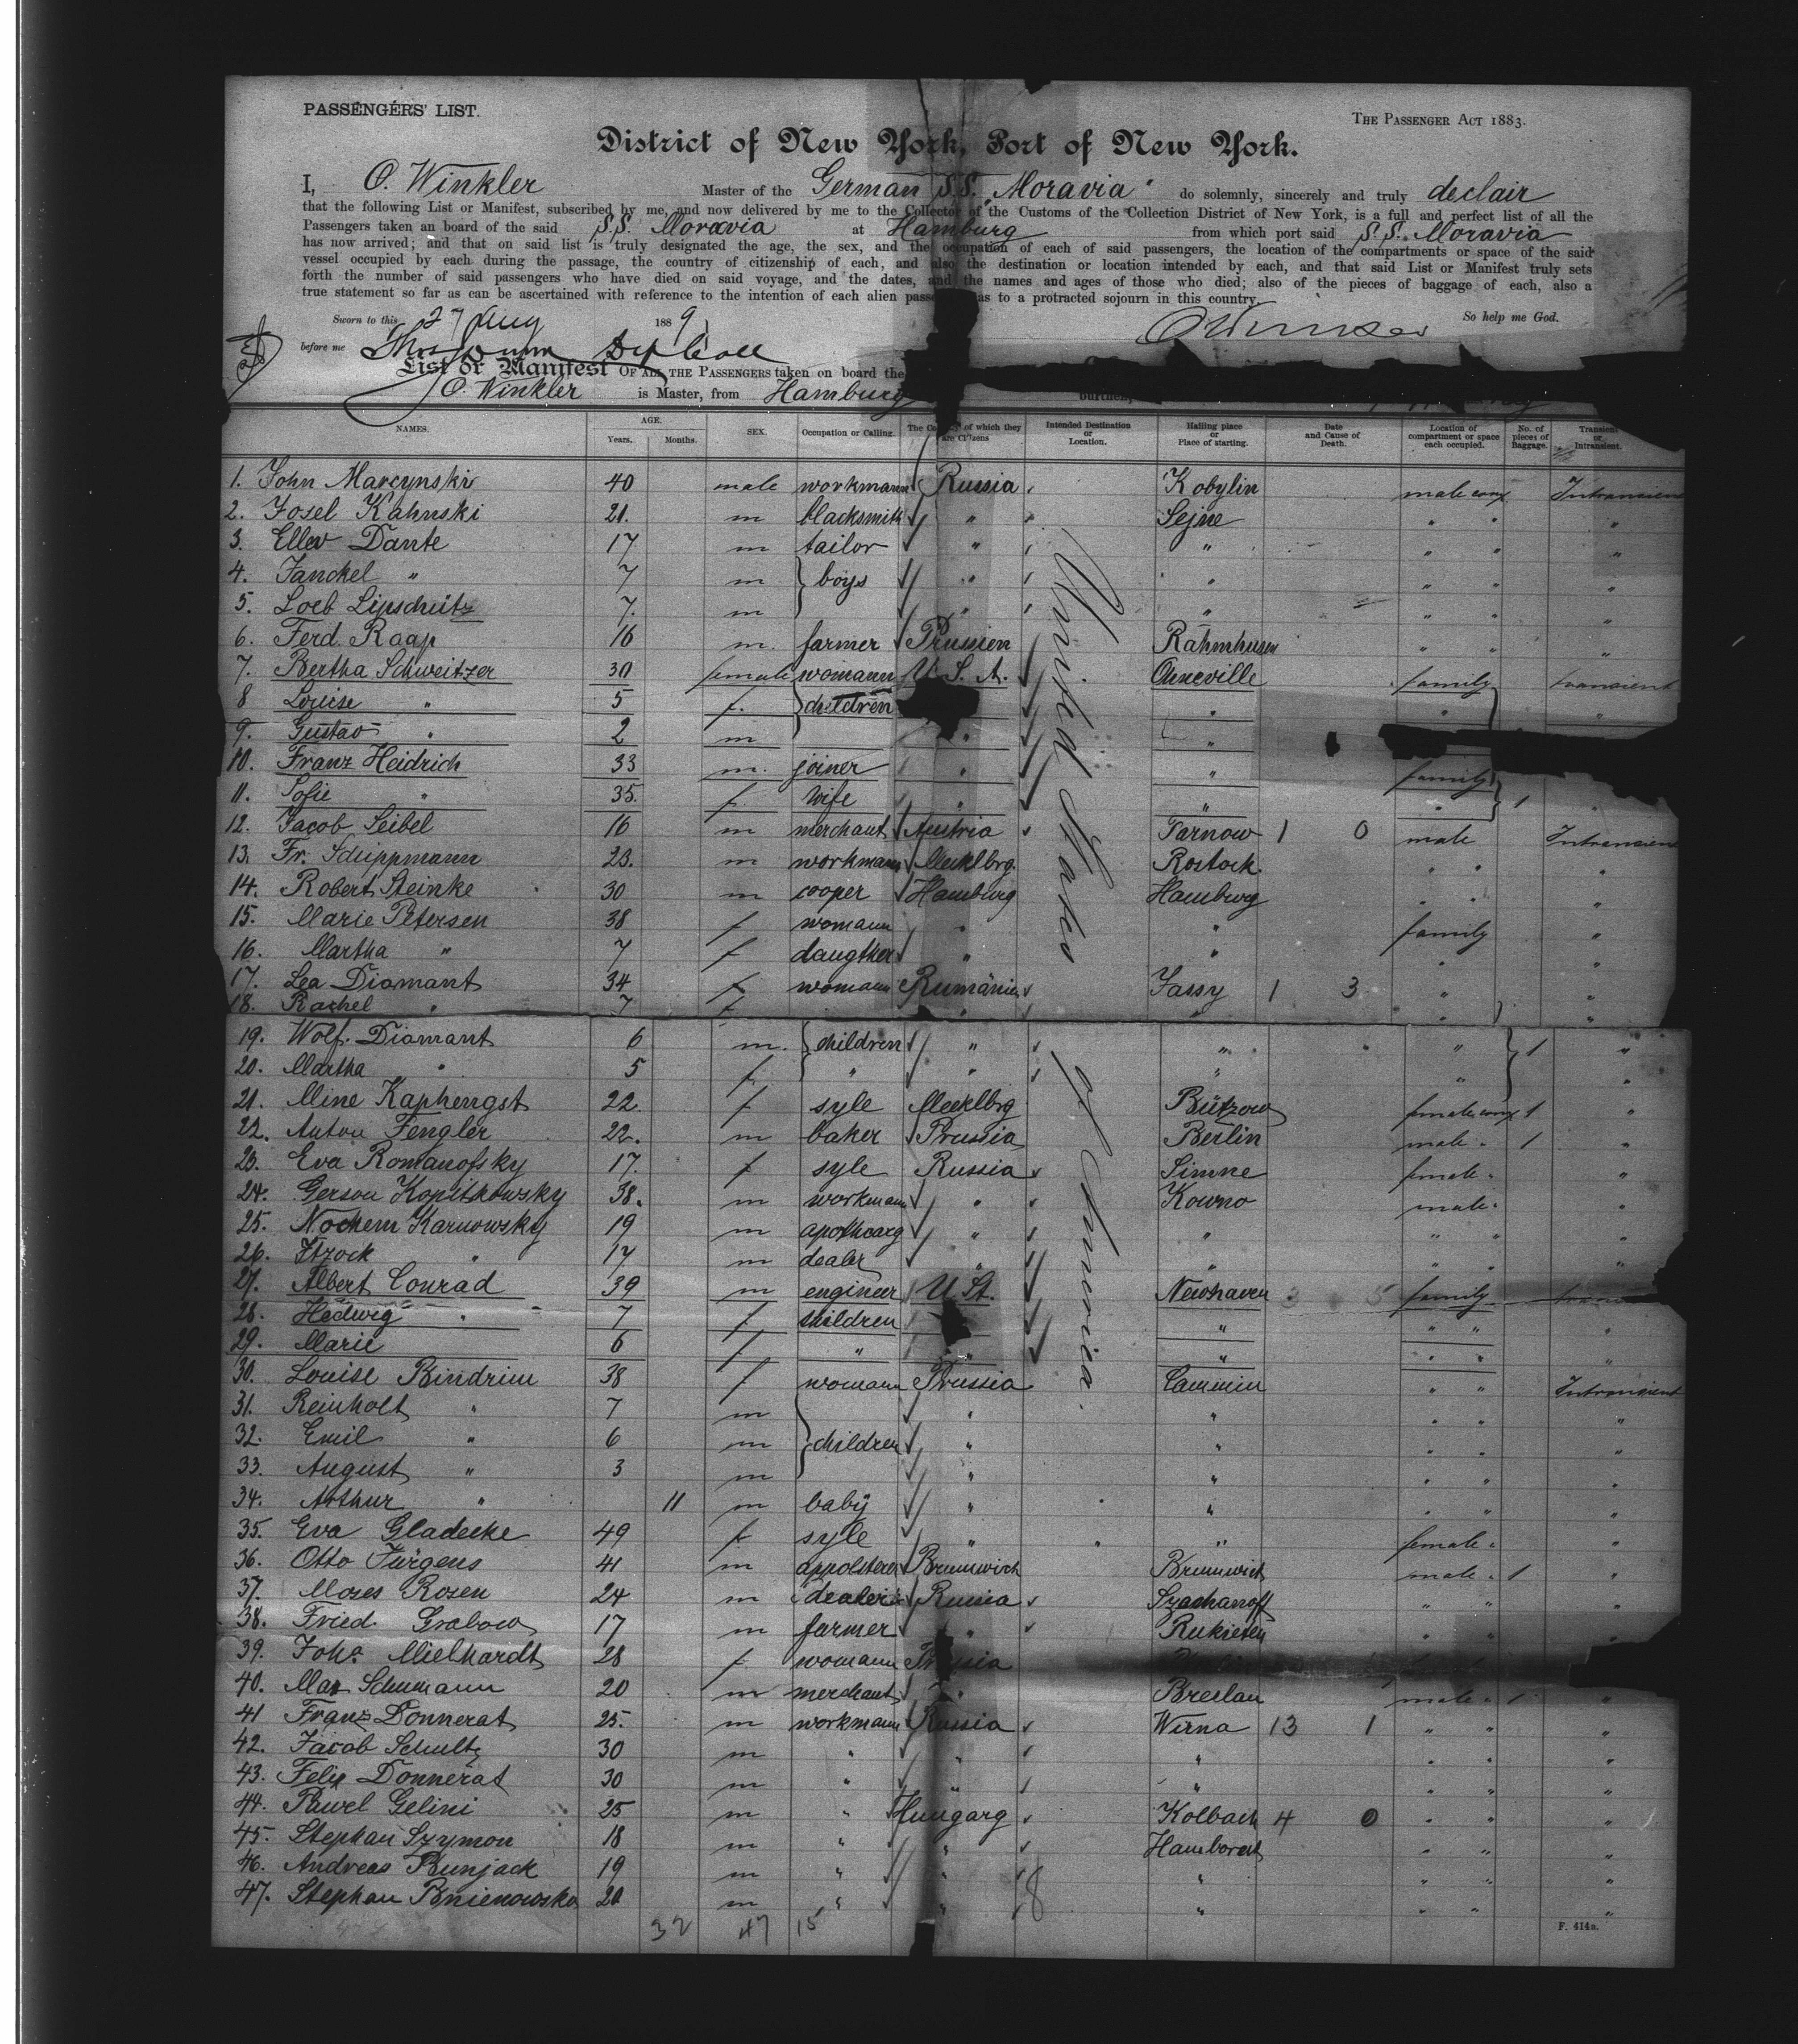 PASSENGERS' LIST.
THE PASSENGER ACT 1883.
District of New York, Port of New York.
I, O. Winkler Master of the German S.S. "Moravia" do solemnly, sincerely and truly declair
that the following List or Manifest, subscribed by me, and now delivered by me to the Collector of the Customs of the Collection District of New York, is a full and perfect list of all the
Passengers taken an board of the said S.S. Moravia at Hamburg from which port said S.S. Moravia
has now arrived; and that on said list is truly designated the age, the sex, and the occupation of each of said passengers, the location of the compartments or space of the said
vessel occupied by each during the passage, the country of citizenship of each, and also the destination or location intended by each, and that said List or Manifest truly sets
forth the number of said passengers who have died on said voyage, and the dates, and the names and ages of those who died; also of the pieces of baggage of each, also a
true statement so far as can be ascertained with reference to the intention of each alien as to a protracted sojourn in this country.
Sworn to this 27 Aug 1889 So help me God.
before me
List or Manifest OF ALL THE PASSENGERS taken on board the
O. Winkler is Master, from Hamburg burthen,
NAMES. AGE. Years. Months. SEX. Occupation or Calling. The Country of which they are Citizens Intended Destination or Location. Hailing place or Place of starting. Date and Cause of Death. Location of compartment or space each occupied. No. of pieces of Baggage. Transient or Intransient.
United States of America.
1. John Marcynski 40 male workmann Russia Kobylin male comp Intransient
2. Josel Kahnski 21. m blacksmith " Sejne " " "
3. Ellev Dante 17 m tailor " " " " "
4. Janckel " 7 m boys " " " " "
5. Loeb Lipschütz 7. m " " " " "
6. Ferd. Raap 16 m. farmer Prussien Rahmhusen " " "
7. Bertha Schweitzer 30 female womann U.S.A. Queville family transient
8 Louise " 5 f. children " " "
9. Gustav " 2 m " "
10. Franz Heidrich 33 m. joiner " " family
11. Sofie " 35. f wife " " " 1 "
12. Jacob Seibel 16 m merchant Austria Tarnow 1 0 male Intransient
13. Fr. Schippmann 23. m workmann Mecklbrg. Rostock " " "
14. Robert Steinke 30 m cooper Hamburg Hamburg " " "
15. Marie Petersen 38 f womann " " family "
16. Martha " 7 f daugther " " " "
17. Lea Diamant 34 f womann Rumänien Jassy 1 3 " "
18. Rachel " 7 f " " " "
19. Wolf. Diamant 6 m. children " " " 1 "
20. Martha " 5 f " " " " "
21. Mine Kaphengst 22. f syle Mecklbrg Bützow female comp 1 "
22. Anton Fengler 22. m baker Prussia Berlin male " 1 "
23. Eva Romanofsky 17. f syle Russia Simne female " "
24. Gerson Kopitkowsky 38. m workmann " Kowno male " "
25. Nochem Karnowsky 19 m apothcarg " " " " "
26. Itzock " 17 m dealer " " " " "
27. Albert Conrad 39 m engineer U. St. Newhaven 3 5 family
28. Hedwig " 7 f children " " " "
29. Marie 6 f " " " " " "
30. Louise Bindrim 38 f womann Prussia Cammin " " Intransient
31. Reinholt " 7 m " " " " "
32. Emil " 6 m children " " " " "
33. August " 3 m " " " " "
34. Arthur " 11 m baby " " " " "
35. Eva Gladecke 49 f syle " " female " "
36. Otto Jürgens 41 m appolsterer Brunswich Brunswich male " 1 "
37. Moses Rosen 24 m dealer Russia Szachanoff " " "
38. Fried. Grabow 17 m farmer " Rukieten " " "
39. Joh. Mielhardt 28 f womann Prussia
40. Max Schumann 20 m merchant " Breslau male " 1 "
41 Franz Donnerat 25. m workmann Russia Wirna 13 1 " " "
42. Jacob Schultz 30 m " " " " " "
43. Felix Donnerat 30 m " " " " " "
44. Pawel Gelini 25 m " Hungarg Kolbach 4 0 " " "
45. Stephan Szymon 18 m " " Hamboret " " "
46. Andreas Runjack 19 m " " " " " "
47. Stephan Bnienowsko 20 m " " 18 " " " "
32 47 15
F. 414a.